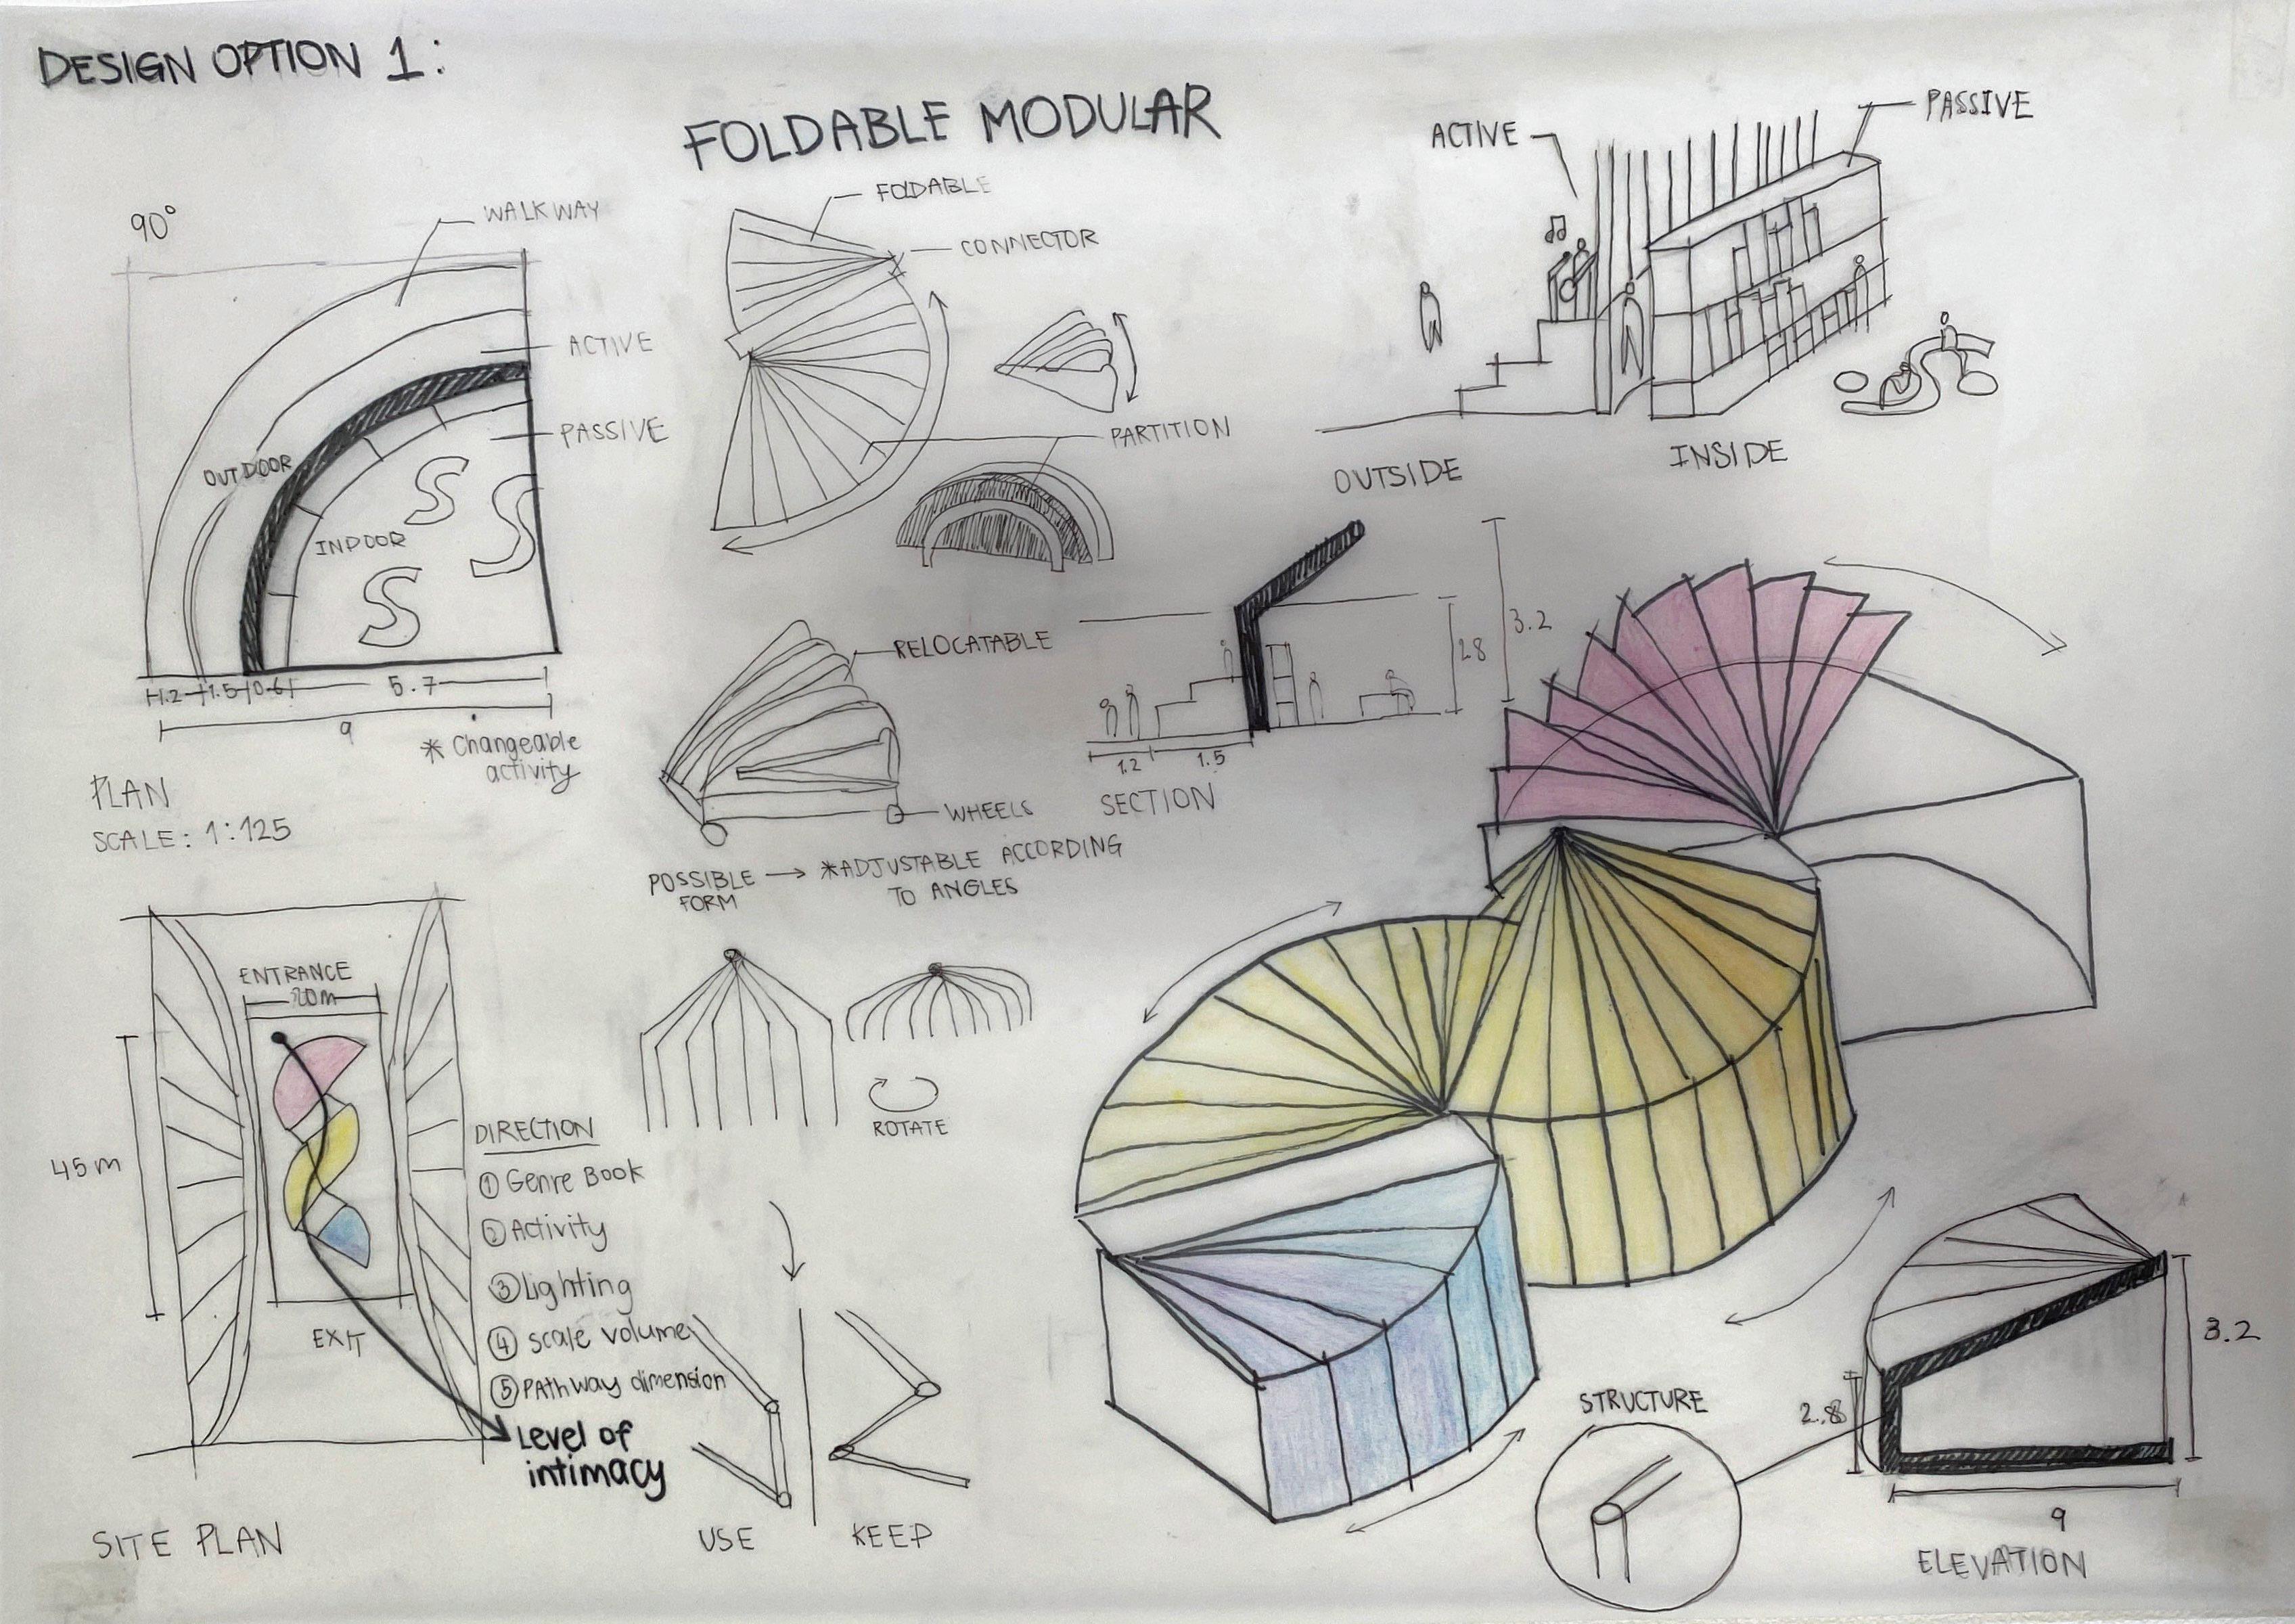 DESIGN OPTION 1:
FOLDABLE MODULAR
90°
WALKWAY
ACTIVE
PASSIVE
OUTDOOR
INDOOR
1.2
1.5
0.6
5.7
9
* Changeable
activity
PLAN
SCALE: 1:125
FOLDABLE
CONNECTOR
PARTITION
RELOCATABLE
WHEELS
POSSIBLE → *ADJUSTABLE ACCORDING
FORM
TO ANGLES
ROTATE
ACTIVE
PASSIVE
OUTSIDE
INSIDE
3.2
2.8
1.2
1.5
SECTION
ENTRANCE
20m
45m
EXIT
SITE PLAN
DIRECTION
① Genre Book
② Activity
③ Lighting
④ scale volume
⑤ PAthway dimension
Level of
intimacy
USE
KEEP
STRUCTURE
2.8
3.2
9
ELEVATION